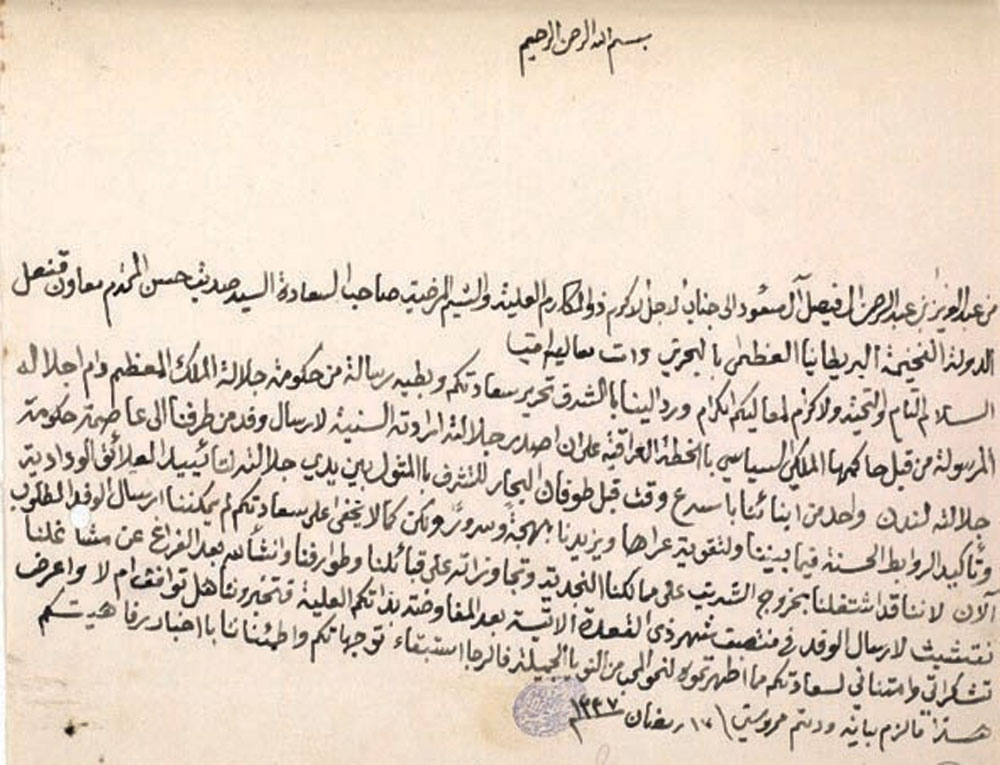 بسم الله الرحمن الرحيم
من عبد العزيز بن عبد الرحمن ال فيصل آل سعود الى جناب الاجل الاكرم ذو المكارم العلية والشيم المرضية صاحب السعادة السيد صديق حسن المحترم معاون قنصل
الدولة الفخيمة البريطانيا العظمى بالبحرين دامت معاليه امين
السلام التام والتحية والاكرام لمعاليكم الكرام ورد الينا بالشرف تحرير سعادتكم وبطيه رسالة من حكومة جلالة الملك المعظم دام اجلاله
المرسولة من قبل حاكمها الملكي السياسي بالخطة العراقية على ان اصدر جلالته ارادته السنية لارسال وفد من طرفنا الى عاصمة حكومة
جلالته لندن واحد من ابنائنا باسرع وقت قبل طوفان البحار للتشرف بالمثول بين يدي جلالته لتأييد العلائق الودادية
وتأكيد الروابط الحسنة فيما بيننا ولتقوية عراها ويزيدنا بهجة وسرورًا ولكن كما لا يخفى على سعادتكم لم يمكننا ارسال الوفد المطلوب
آلان لاننا قد اشتغلنا بخروج الشريف على ممالكنا النجدية وتجاوزاته على قبائلنا وطوارفنا وانشأ الله بعد الفراغ عن مشاغلنا
نتشبث لارسال الوفد في منتصف شهر ذي القعدة الاتية بعد المفاوضة بذاتكم العلية فتخبرونا هل توافق ام لا واعرض
تشكراتي وامتناني لسعادتكم ما اظهرتموه لنحو المحب من النوايا الجميلة فالرجا استبقاء توجهاتكم واطمئناننا باخبار رفاهيتكم
هذا ما لزم بيانه ودمتم محروسين ١٧ رمضان ١٣٣٧